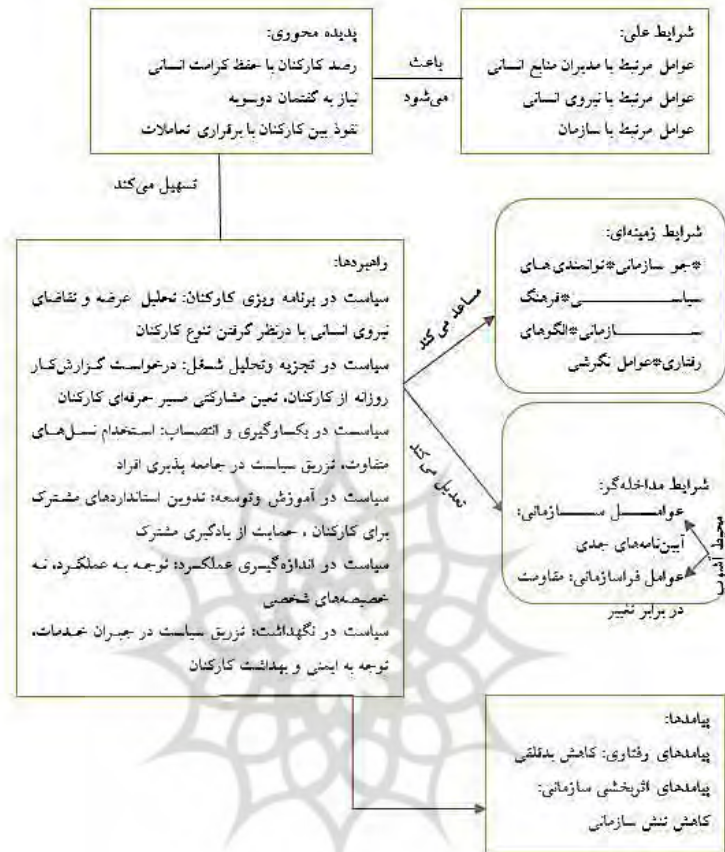 شرایط علی:
عوامل مرتبط با مدیران منابع انسانی
عوامل مرتبط با نیروی انسانی
عوامل مرتبط با سازمان
باعث
می‌شود
پدیده محوری:
رصد کارکنان با حفظ کرامت انسانی
نیاز به گفتمان دوسویه
نفوذ بین کارکنان با برقراری تعاملات
تسهیل می‌کند
راهبردها:
سیاست در برنامه ریزی کارکنان: تحلیل عرضه و تقاضای
نیروی انسانی با درنظر گرفتن تنوع کارکنان
سیاست در تجزیه وتحلیل شغل: درخواست گزارش‌کار
روزانه از کارکنان، تعین مشارکتی مسیر حرفه‌ای کارکنان
سیاست در بکسارگیری و انتصاب: استخدام نسل‌های
متفاوت، تزریق سیاست در جامعه پذیری افراد
سیاست در آموزش وتوسعه: تدوین استانداردهای مشترک
برای کارکنان ، حمایت از یادگیری مشترک
سیاست در اندازه‌گیری عملکرد: توجه به عملکرد، نه
خصیصه‌های شخصی
سیاست در نگهداشت: تزریق سیاست در جبران خدمات،
توجه به ایمنی و بهداشت کارکنان
مساعد می کند
شرایط زمینه‌ای:
*جو سازمانی*توانمندی‌های
سیاسی*فرهنگ
سازمانی*الگوهای
رفتاری*عوامل نگرشی
تعدیل می‌کند
شرایط مداخله‌گر:
عوامل سازمانی:
آیین‌نامه‌های جدی
عوامل فراسازمانی: مقاومت
در برابر تغییر
محیط آشوب
پیامدها:
پیامدهای رفتاری: کاهش بدقلقی
پیامدهای اثربخشی سازمانی:
کاهش تنش سازمانی